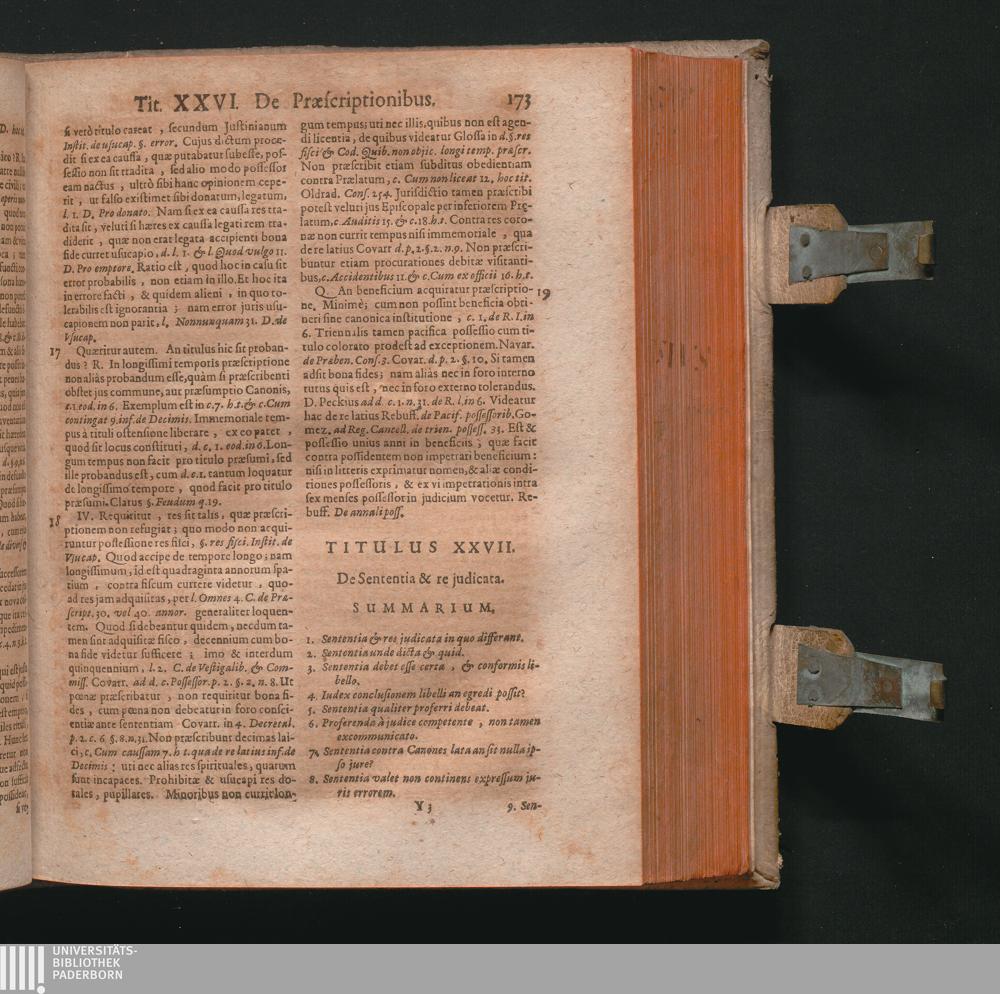 Tit. XXVI. De Præscriptionibus. 173
si verò titulo careat, secundum Justinianum
Instit. de usucap. §. error. Cujus dictum proce-
dit si ex ea caussa, quæ putabatur subesse, pos-
sessio non sit tradita, sed alio modo possessor
eam nactus, ultrò sibi hanc opinionem cepe-
rit, ut falso existimet sibi donatum, legatum,
l. 1. D. Pro donato. Nam si ex ea caussa res tra-
dita sit, veluti si hæres ex caussa legati rem tra-
diderit, quæ non erat legata accipienti bona
fide curret usucapio, d. l. 1. & l. Quod vulgo 11.
D. Pro emptore. Ratio est, quod hoc in casu sit
error probabilis, non etiam in illo. Et hoc ita
in errore facti, & quidem alieni, in quo to-
lerabilis est ignorantia; nam error juris usu-
capionem non parit, l. Nonnunquam 31. D. de
Vsucap.
17 Quæritur autem. An titulus hic sit proban-
dus? R. In longissimi temporis præscriptione
non aliàs probandum esse, quàm si præscribenti
obstet jus commune, aut præsumptio Canonis,
c. 1. eod. in 6. Exemplum est in c. 7. h. t. & c. Cum
contingat 9. inf. de Decimis. Immemoriale tem-
pus à tituli ostensione liberare, ex eo patet,
quod sit locus constituti, d. c. 1. eod. in 6. Lon-
gum tempus non facit pro titulo præsumi, sed
ille probandus est, cum d. c. 1. tantum loquatur
de longissimo tempore, quod facit pro titulo
præsumi. Clarus §. Feudum q. 19.
18 IV. Requiritur, res sit talis, quæ præscri-
ptionem non refugiat; quo modo non acqui-
runtur possessione res fisci, §. res fisci. Instit. de
Vsucap. Quod accipe de tempore longo; nam
longissimum, id est quadraginta annorum spa-
tium, contra fiscum currere videtur, quo-
ad res jam adquisitas, per l. Omnes 4. C. de Præ-
script. 30. vel 40. annor. generaliter loquen-
tem. Quod si debeantur quidem, necdum ta-
men sint adquisitæ fisco, decennium cum bo-
na fide videtur sufficere; imo & interdum
quinquennium, l. 2. C. de Vestigalib. & Com-
miss. Covarr. ad d. c. Possessor. p. 2. §. 2. n. 8. Ut
pœnæ præscribatur, non requiritur bona fi-
des, cum pœna non debeatur in foro consci-
entiæ ante sententiam Covarr. in 4. Decretal.
p. 2. c. 6. §. 8. n. 31. Non præscribunt decimas lai-
ci, c. Cum caussam 7. h t. qua de re latius inf. de
Decimis: uti nec alias res spirituales, quarum
sunt incapaces. Prohibitæ & usucapi res do-
tales, pupillares. Minoribus non currit lon-
gum tempus; uti nec illis. quibus non est agen-
di licentia, de quibus videatur Glossa in d. §. res
fisci & Cod. Quib. non objic. longi temp. præscr.
Non præscribit etiam subditus obedientiam
contra Prælatum, c. Cum non liceat 12. hoc tit.
Oldrad. Cons. 254. Jurisdictio tamen præscribi
potest veluti jus Episcopale per inferiorem Pre-
latum, c. Auditis 15. & c. 18. h. t. Contra res coro-
næ non currit tempus nisi immemoriale, qua
de re latius Covarr d. p. 2. §. 2. n. 9. Non præscri-
buntur etiam procurationes debitæ visitanti-
bus, c. Accidentibus 11. & c. Cum ex officii 16. h. t.
Q. An beneficium acquiratur præscriptio- 19
ne. Minimè; cum non possint beneficia obti-
neri sine canonica institutione, c. 1. de R. I. in
6. Triennalis tamen pacifica possessio cum ti-
tulo colorato prodest ad exceptionem. Navar.
de Præben. Cons. 3. Covar. d. p. 2. §. 10. Si tamen
adsit bona fides; nam aliàs nec in foro interno
tutus quis est, nec in foro externo tolerandus.
D. Peckius ad d c. 1. n. 31. de R. I. in 6. Videatur
hac de re latius Rebuff. de Pacif. possessorib. Go-
mez. ad Reg. Cancell. de trien. possess. 33. Est &
possessio unius anni in beneficiis; quæ facit
contra possidentem non impetrari beneficium:
nisi in litteris exprimatur nomen, & aliæ condi-
tiones possessoris, & ex vi impetrationis intra
sex menses possessor in judicium vocetur. Re-
buff. De annali poss.
TITULUS XXVII.
De Sententia & re judicata.
SUMMARIUM,
1. Sententia & res judicata in quo differant.
2. Sententia unde dicta & quid.
3. Sententia debet esse certa, & conformis li-
bello.
4. Iudex conclusionem libelli an egredi possit?
5. Sententia qualiter proferri debeat.
6. Proferenda à judice competente, non tamen
excommunicato.
7. Sententia contra Canones lata an sit nulla ip-
so jure?
8. Sententia valet non continens expressum ju-
ris errorem.
Y 3 9. Sen-
UNIVERSITÄTS-
BIBLIOTHEK
PADERBORN